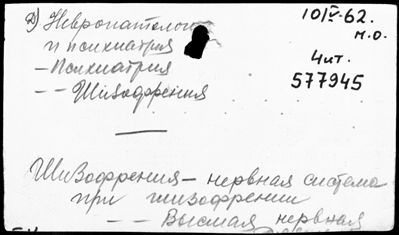 2) Невропатология
и психиатрия
– Психиатрия
– – Шизофрения
10/V-62.
м.о.
Чит.
577945
Шизофрения – нервная система
при шизофрении
– – Высшая нервная